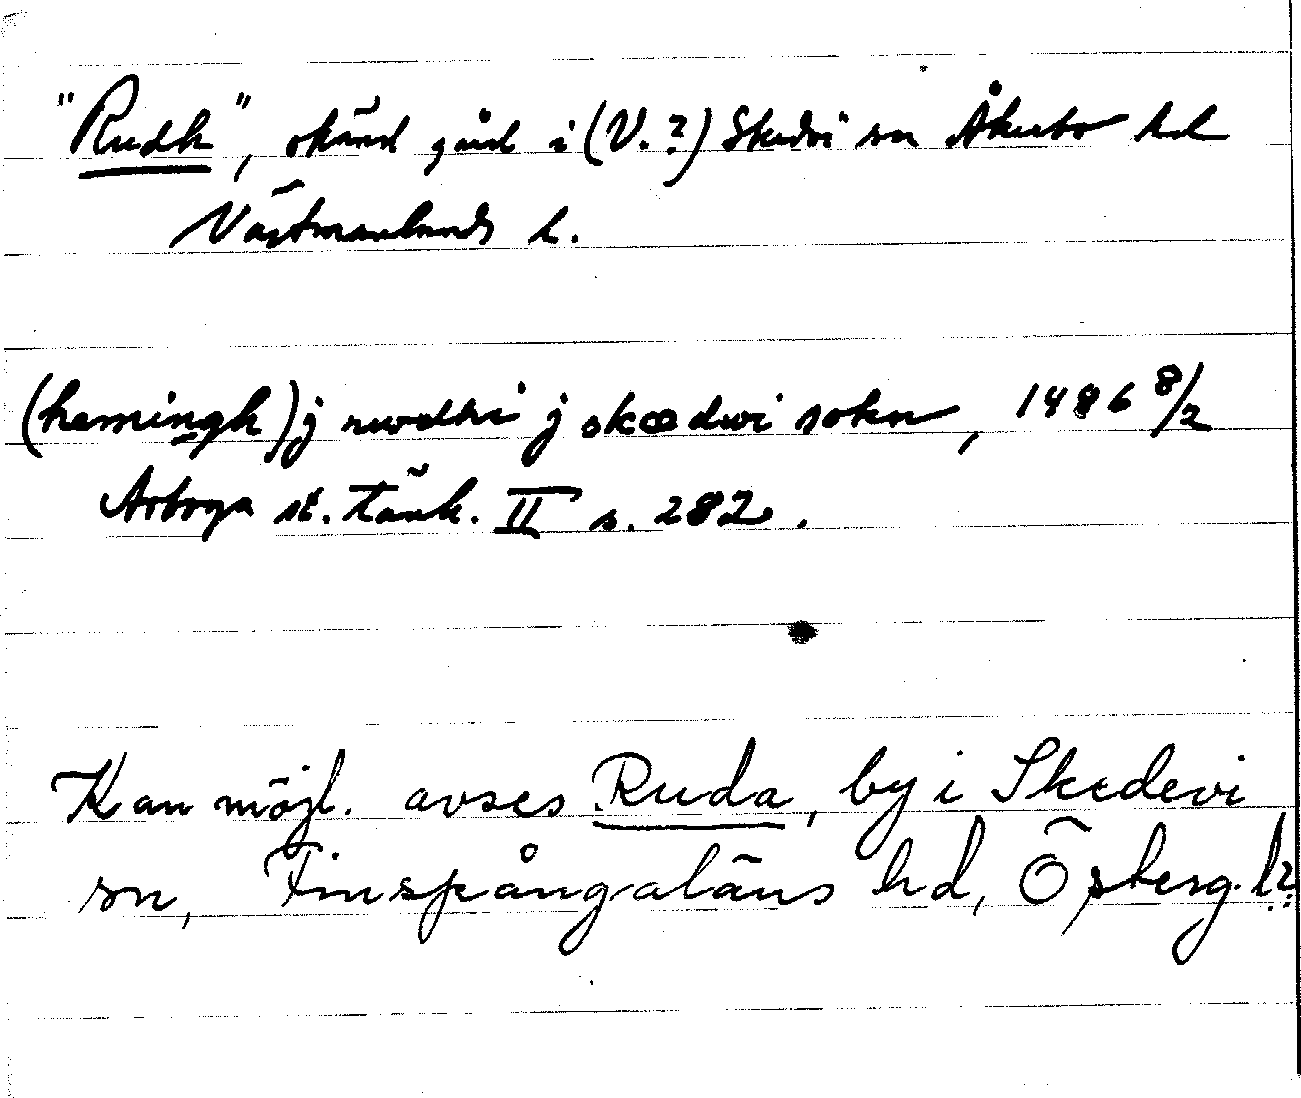 "Rudh", okänd gård i (V.?) Skedvi sn Åkerbo hd
Västmanlands l.
(hemingh) j rwdhi j skædwi sokn, 1486 8/2
Arboga st. tänk. II s. 282.
Kan möjl. avses Ruda, by i Skedevi
sn, Finspångaläns hd, Östergötl. l.?